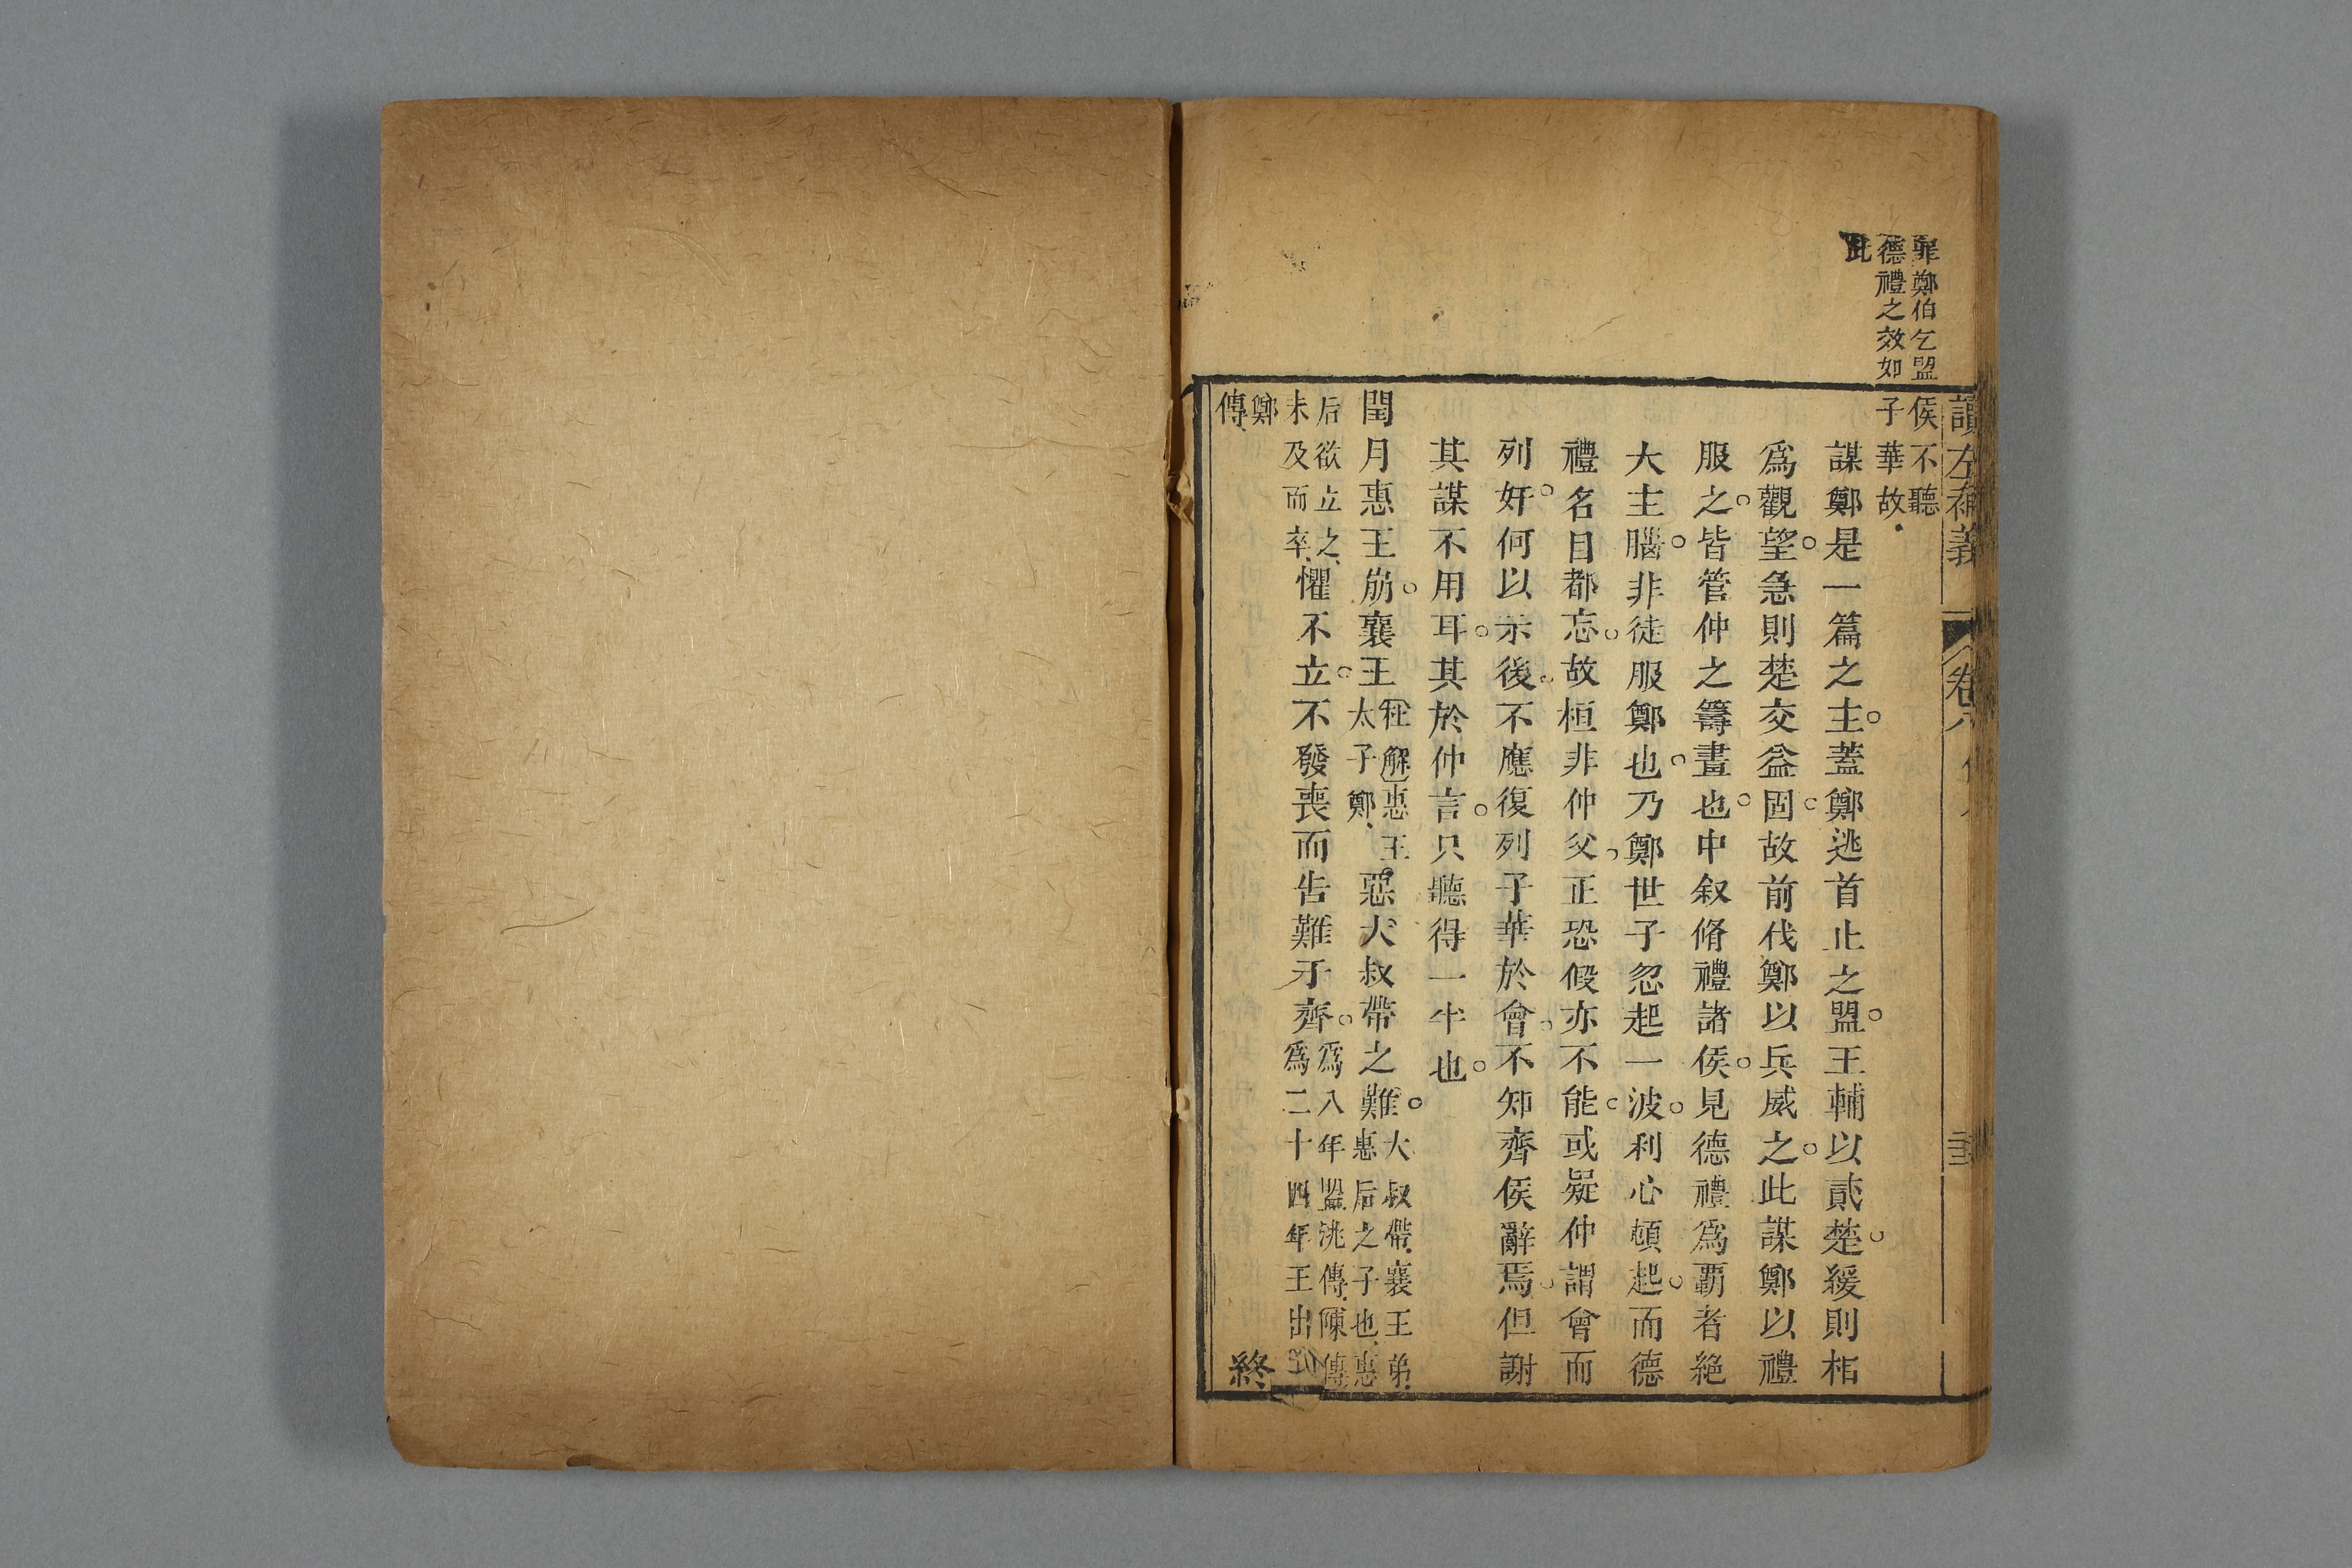 罪鄭伯乞盟
德禮之效如
此
讀左補義
卷八
侯不聽
子華故
謀鄭是一篇之主蓋鄭逃首止之盟王輔以貳楚緩則相
爲觀望急則楚交益固故前伐鄭以兵威之此謀鄭以禮
服之皆管仲之籌畫也中叙脩禮諸侯見德禮爲覇者絕
大主腦非徒服鄭也乃鄭世子忽起一波利心頓起而德
禮名目都忘故桓非仲父正恐假亦不能或疑仲謂會而
列奸何以示後不應復列子華於會不知齊侯辭焉但謝
其謀不用耳其於仲言只聽得一半也
閏月惠王崩襄王
杜解惠王
太子鄭
惡大叔帶之難
大叔帶襄王弟
惠后之子也惠
后欲立之
未及而卒
懼不立不發喪而告難于齊
爲八年盟洮傳陳傳
爲二十四年王出
鄭
傳
終